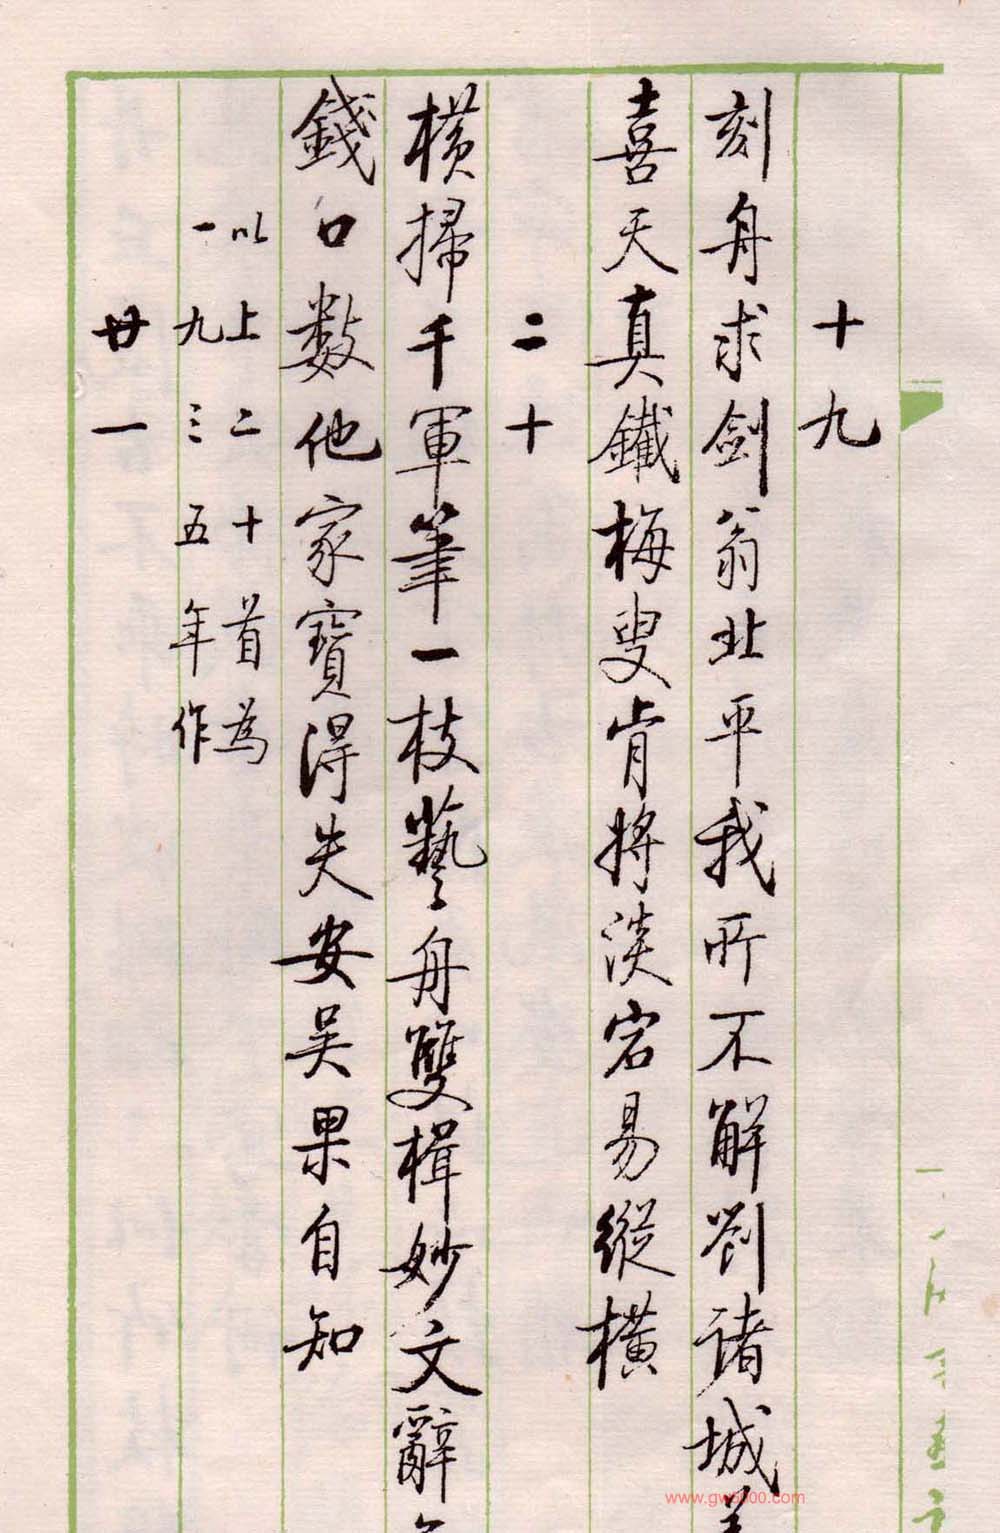 十九
刻舟求劍翁北平我所不解劉諸城差
喜天真鐵梅叟肯將淡宕易縱橫
二十
橫掃千軍筆一枝藝舟雙楫妙文辭
錢口數他家寶得失安吳果自知
以上二十首為
一九三五年作
廿一
www.gw5000.com